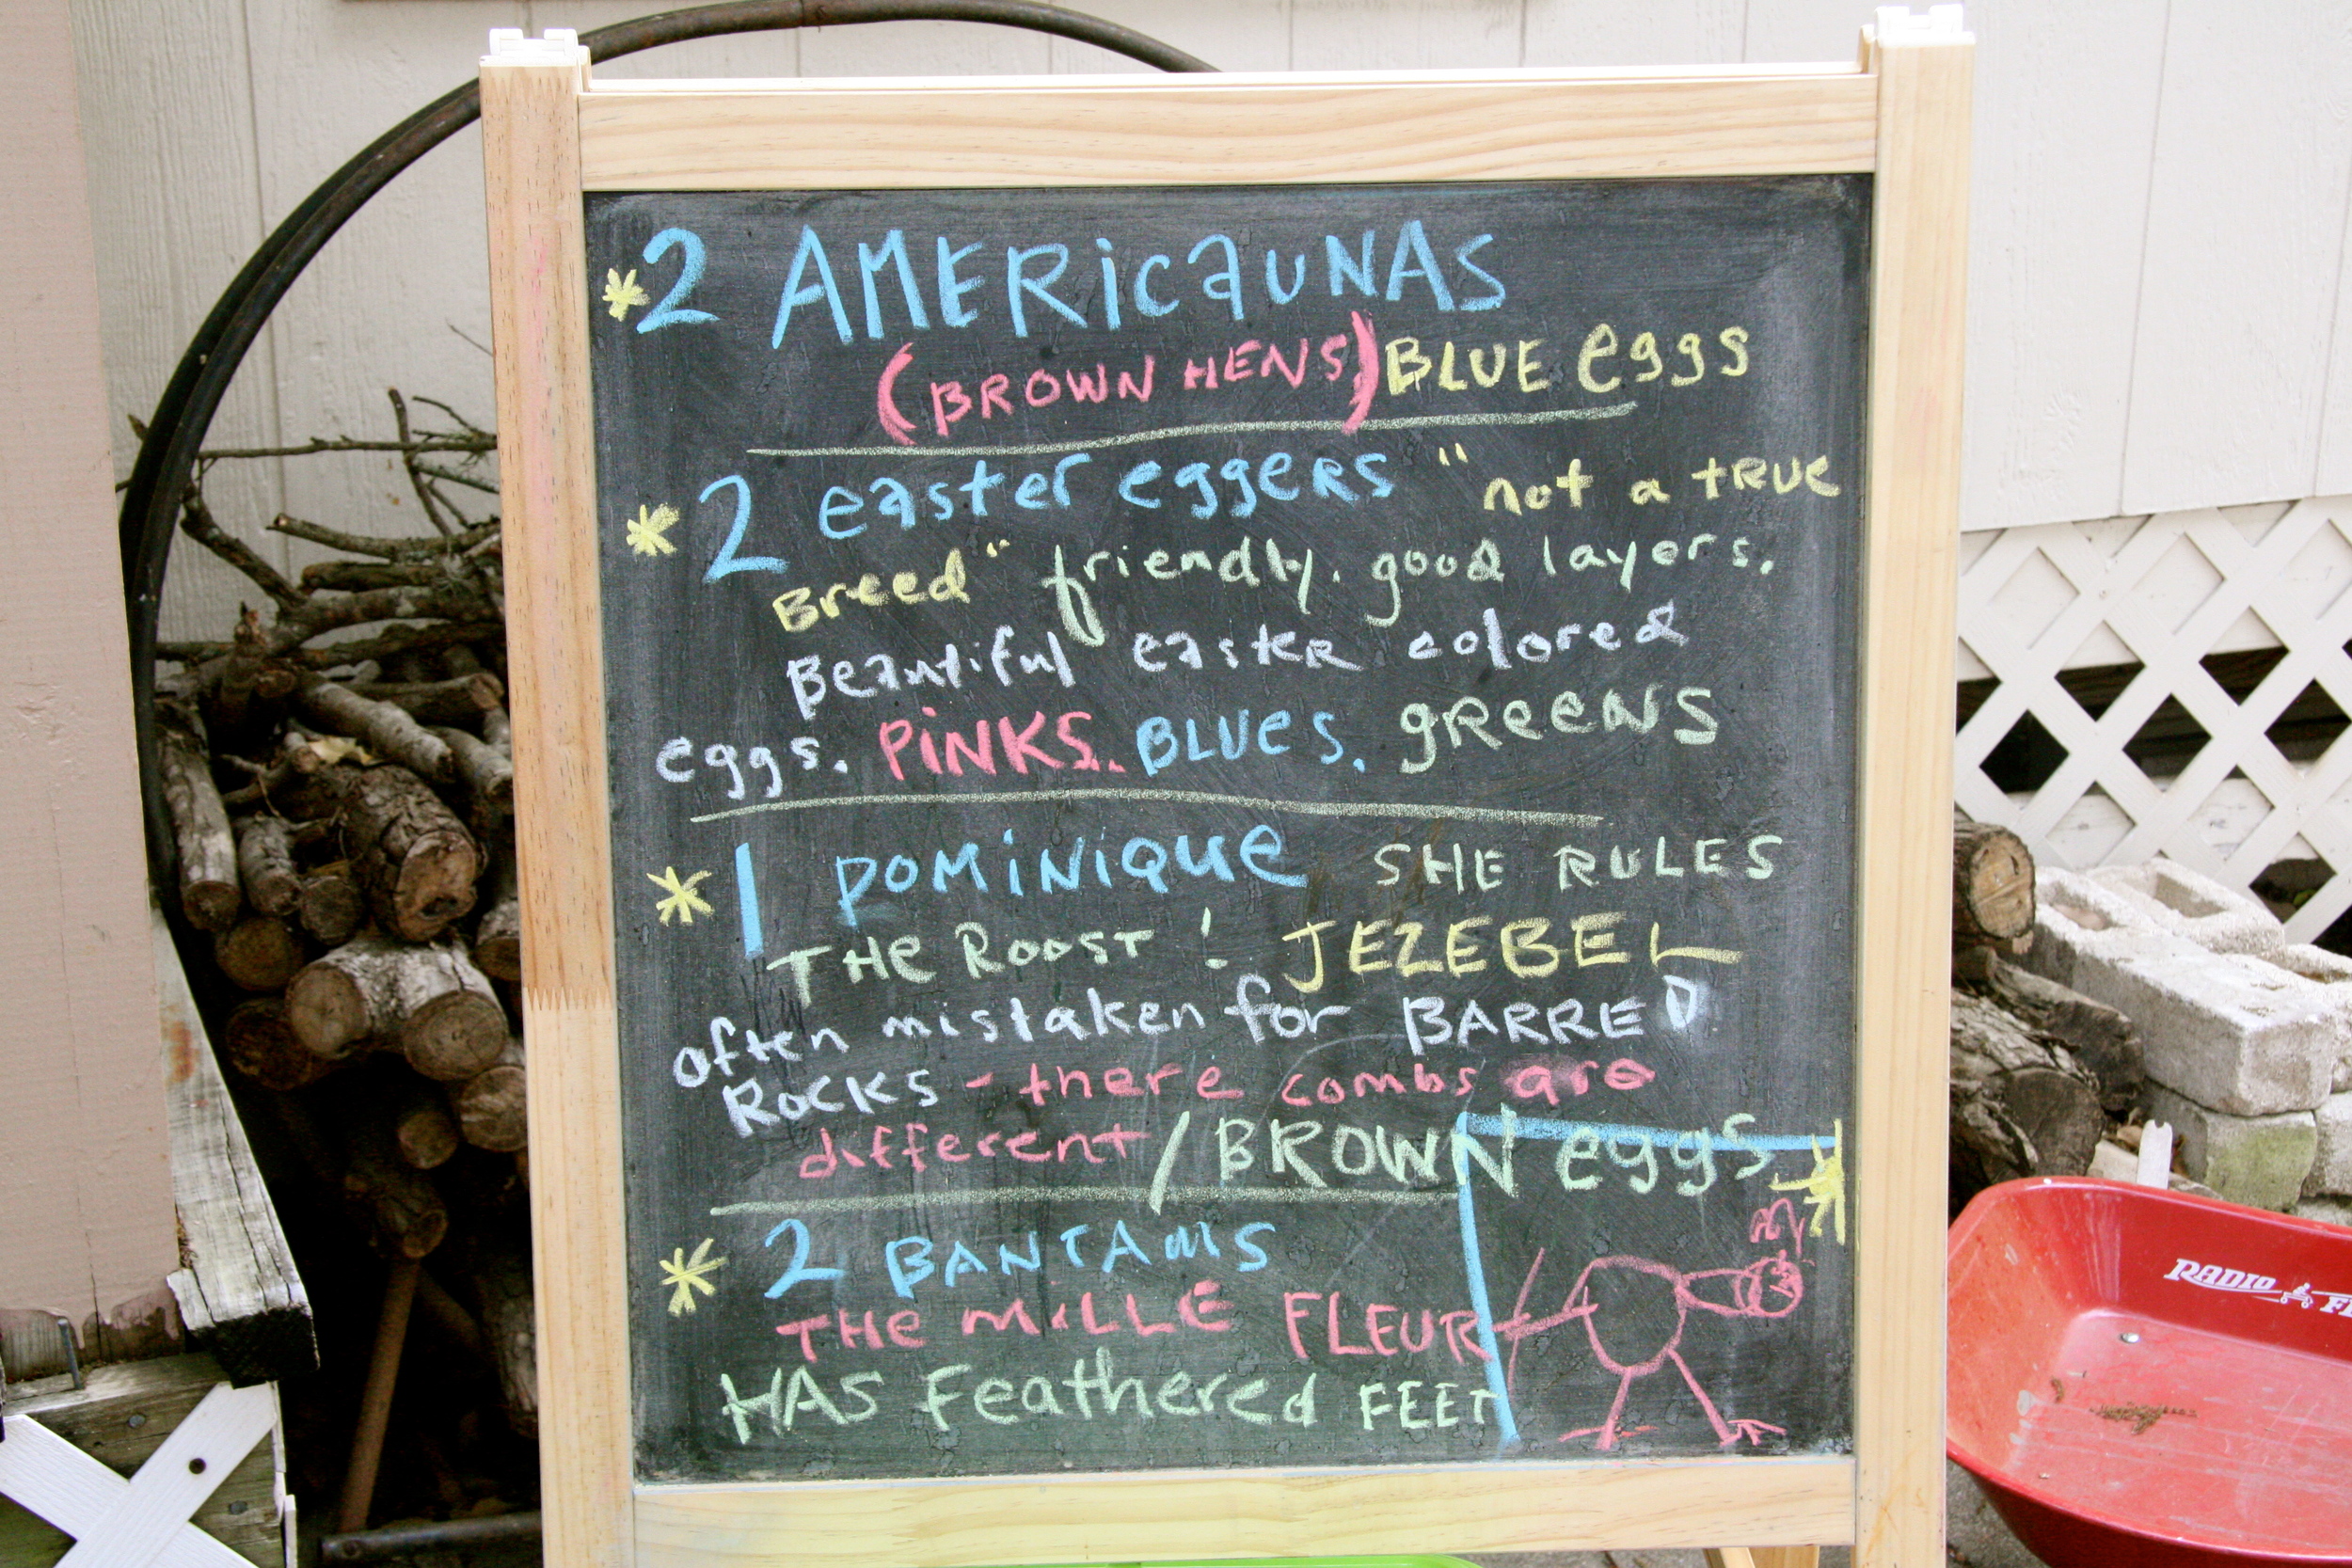 *2 AMERICAUNAS
(BROWN HENS) BLUE eggs
* 2 easter eggers "not a TRUE
Breed" friendly. good layers.
Beautiful easter colored
eggs. PINKS. BLUES. GREENS
* 1 DOMINIQUE SHE RULES
THE ROOST! JEZEBEL
often mistaken for BARRED
ROCKS - there combs are
different / BROWN eggs
* 2 BANTAMS
THE MILLE FLEUR
HAS Feathered FEET
RADIO